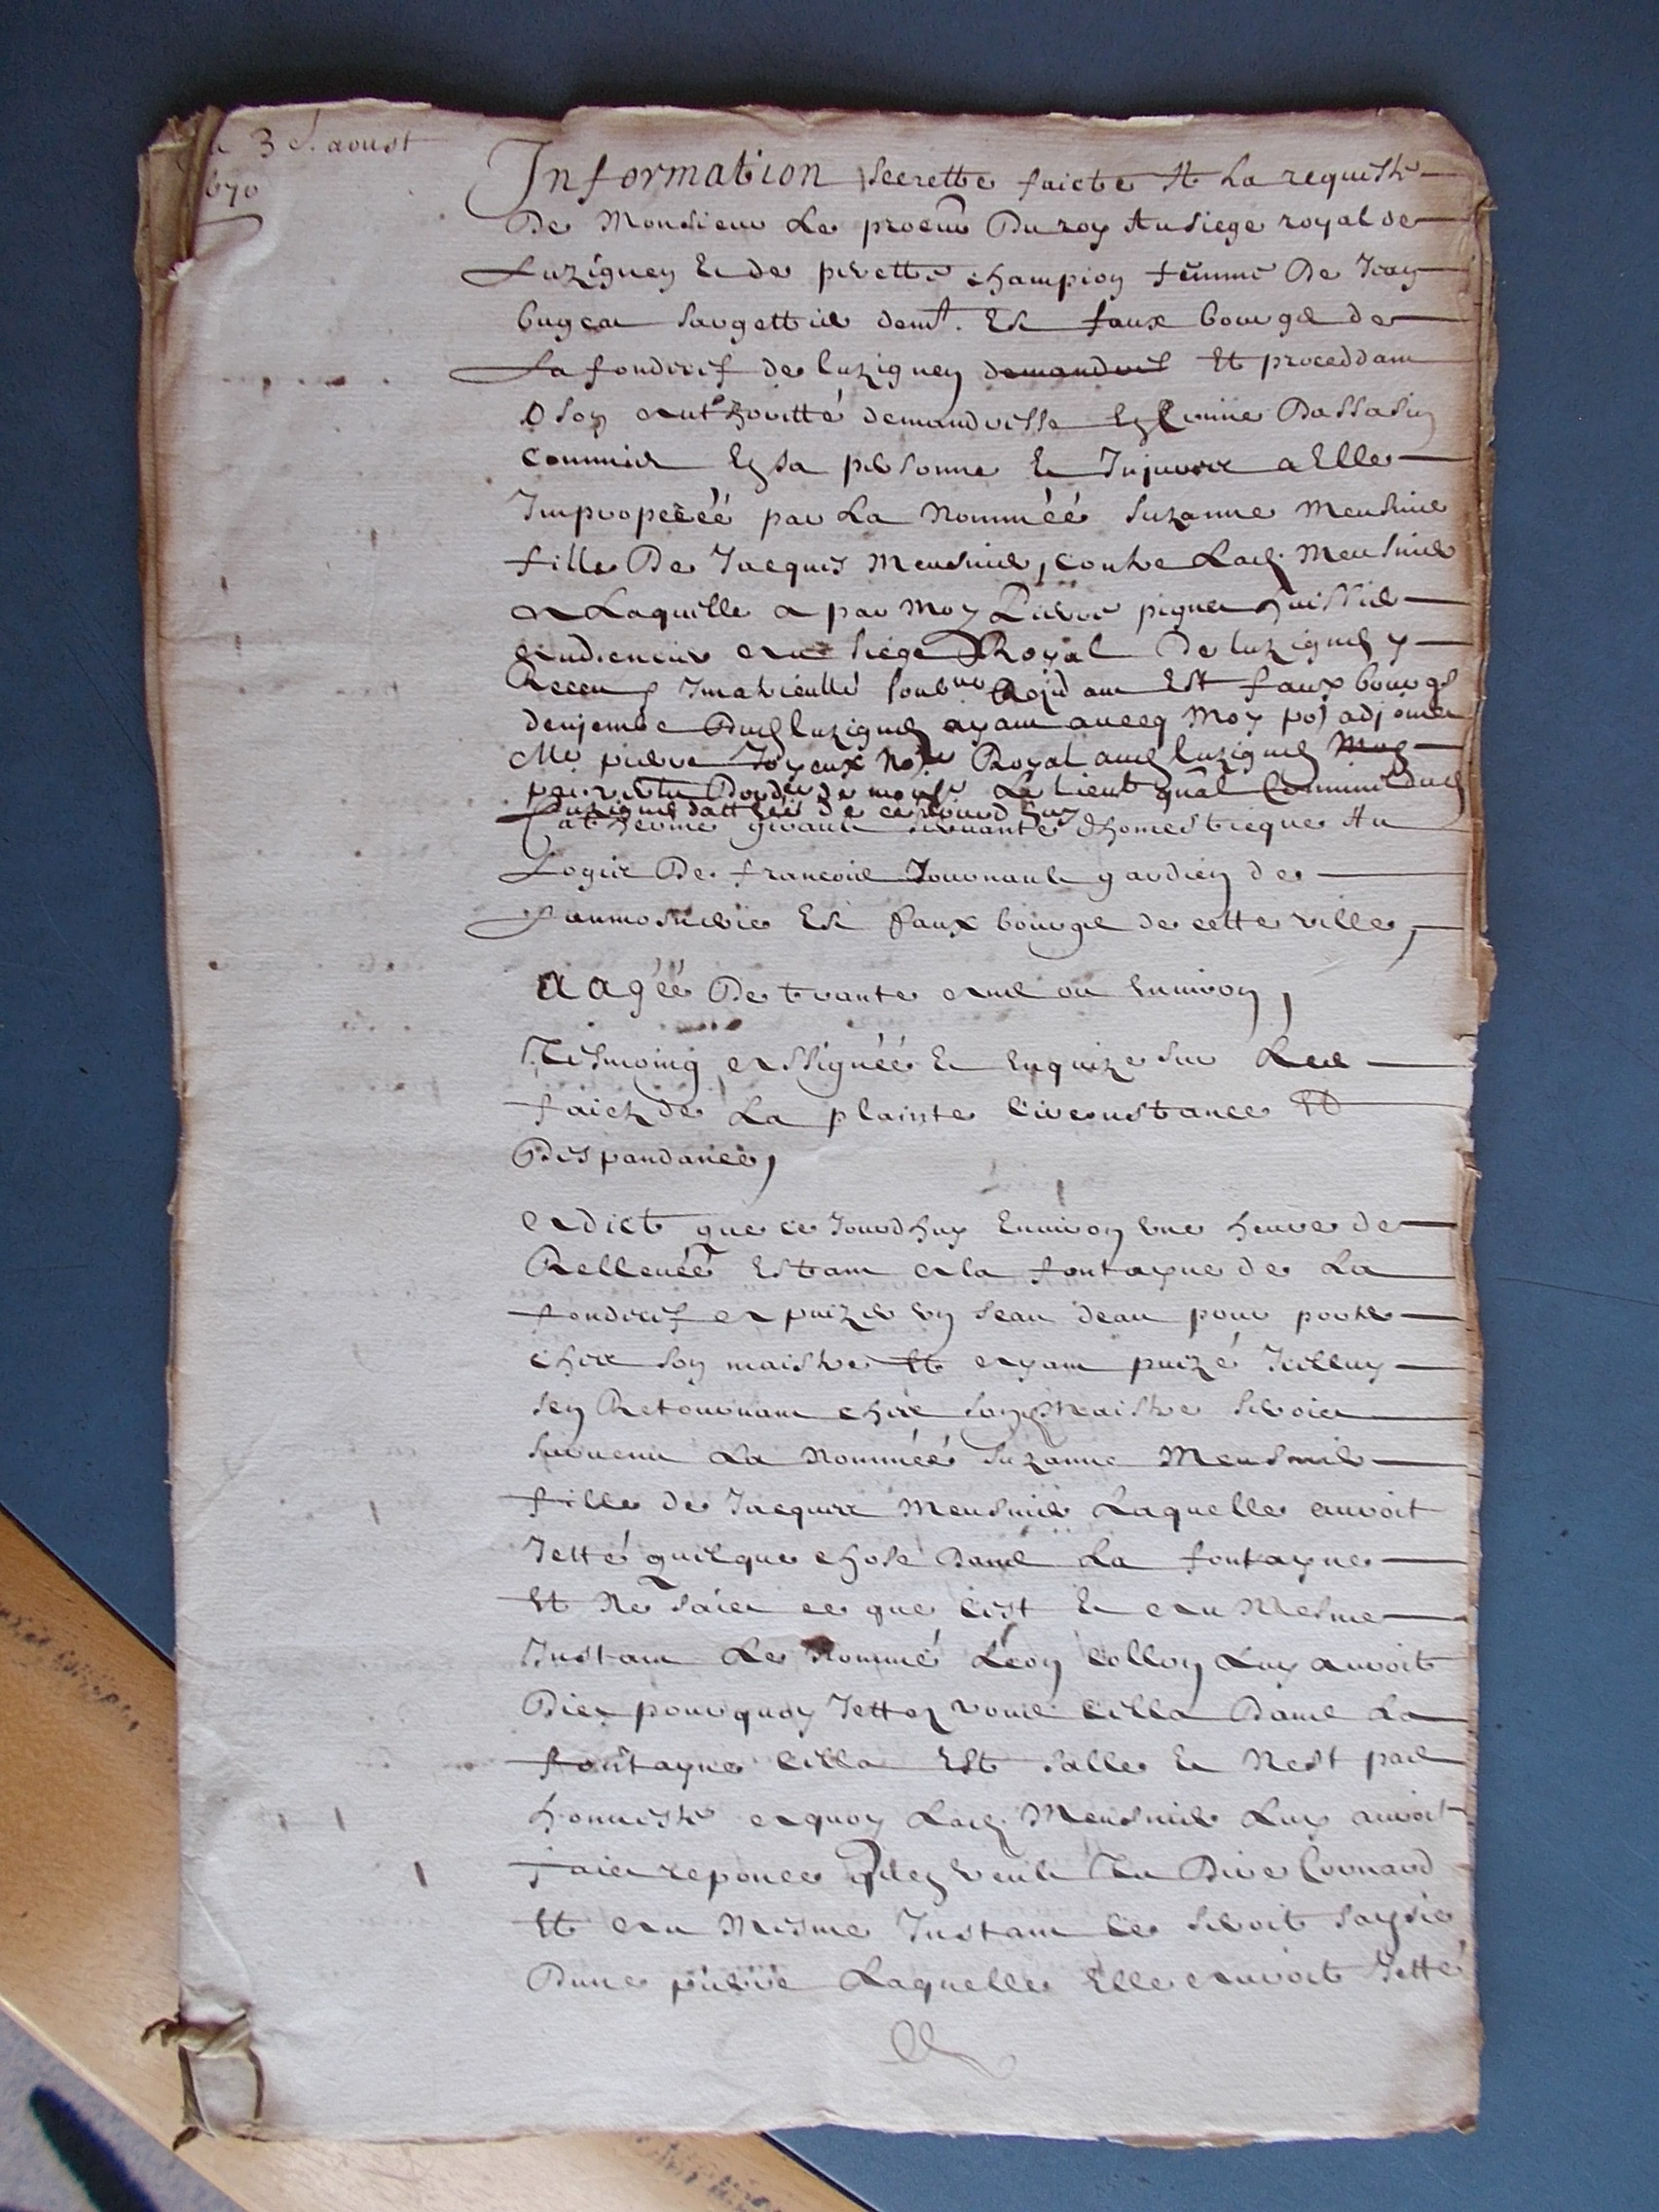 3 d'aoust
670
Information secrette faicte A La requeste
De Monsieur Le procur Du roy Au siege royal de
Luzignen Et de perette champion femme De Jean
sargettier demt. Es faux bourgs de
La fondrief de luzignen demandeurs Et proceddant
o son authoritté demandresse En crime Dassasin
commis En sa personne Et Injures a Elle
Improperéé par La Nomméé Suzanne Meusnier
fille De Jacques Meusnier, contre Lad. Meusnier
A Laquelle a par Moy Pierre huissier
audiencier au siege Royal De luzignen y
Receu Et faux bourgs
Dud luzignen ayant avecq Moy pos adjoint
Me pierre Joyeux Nore Royal aud luzignen
Le Lieut
luzignen dattéé de ce Jourd huy
Catherine servante dhomestecque Au
Logis De francois Journault gardien de
Laumosnerie Es faux bourgs de cette ville,
aagéé De trante ans ou Environ,
Tesmoing assignéé Et Enquize sur Les
faictz de La plainte circonstance Et
Despandances,
A dict que ce Jourdhuy Environ une heure de
Rellevéé Estant a la fontayne de La
fondrief a puizer un seau deau pour porter
chez son maistre Et ayant puizé Icelluy
sen Retournant chez son Maistre seroit
survenu La Nomméé Suzanne Meusnier
fille de Jacques Meusnier Laquelle auroit
Jetté quelque chose Dans La fontayne
Et Ne sait ce que cest Et au Mesme
Instant Le Nommé Léon collon Luy auroit
Dict pourquoy Jettez vous cella Dans La
fontayne cella Est salle Et Nest pas
honneste a quoy Lad. Meusnier Luy auroit
faict reponce quen veult Tu Dire Cornard
Et au Mesme Instant ce seroit saysie
Dune pierre Laquelle Elle auroit Jetté